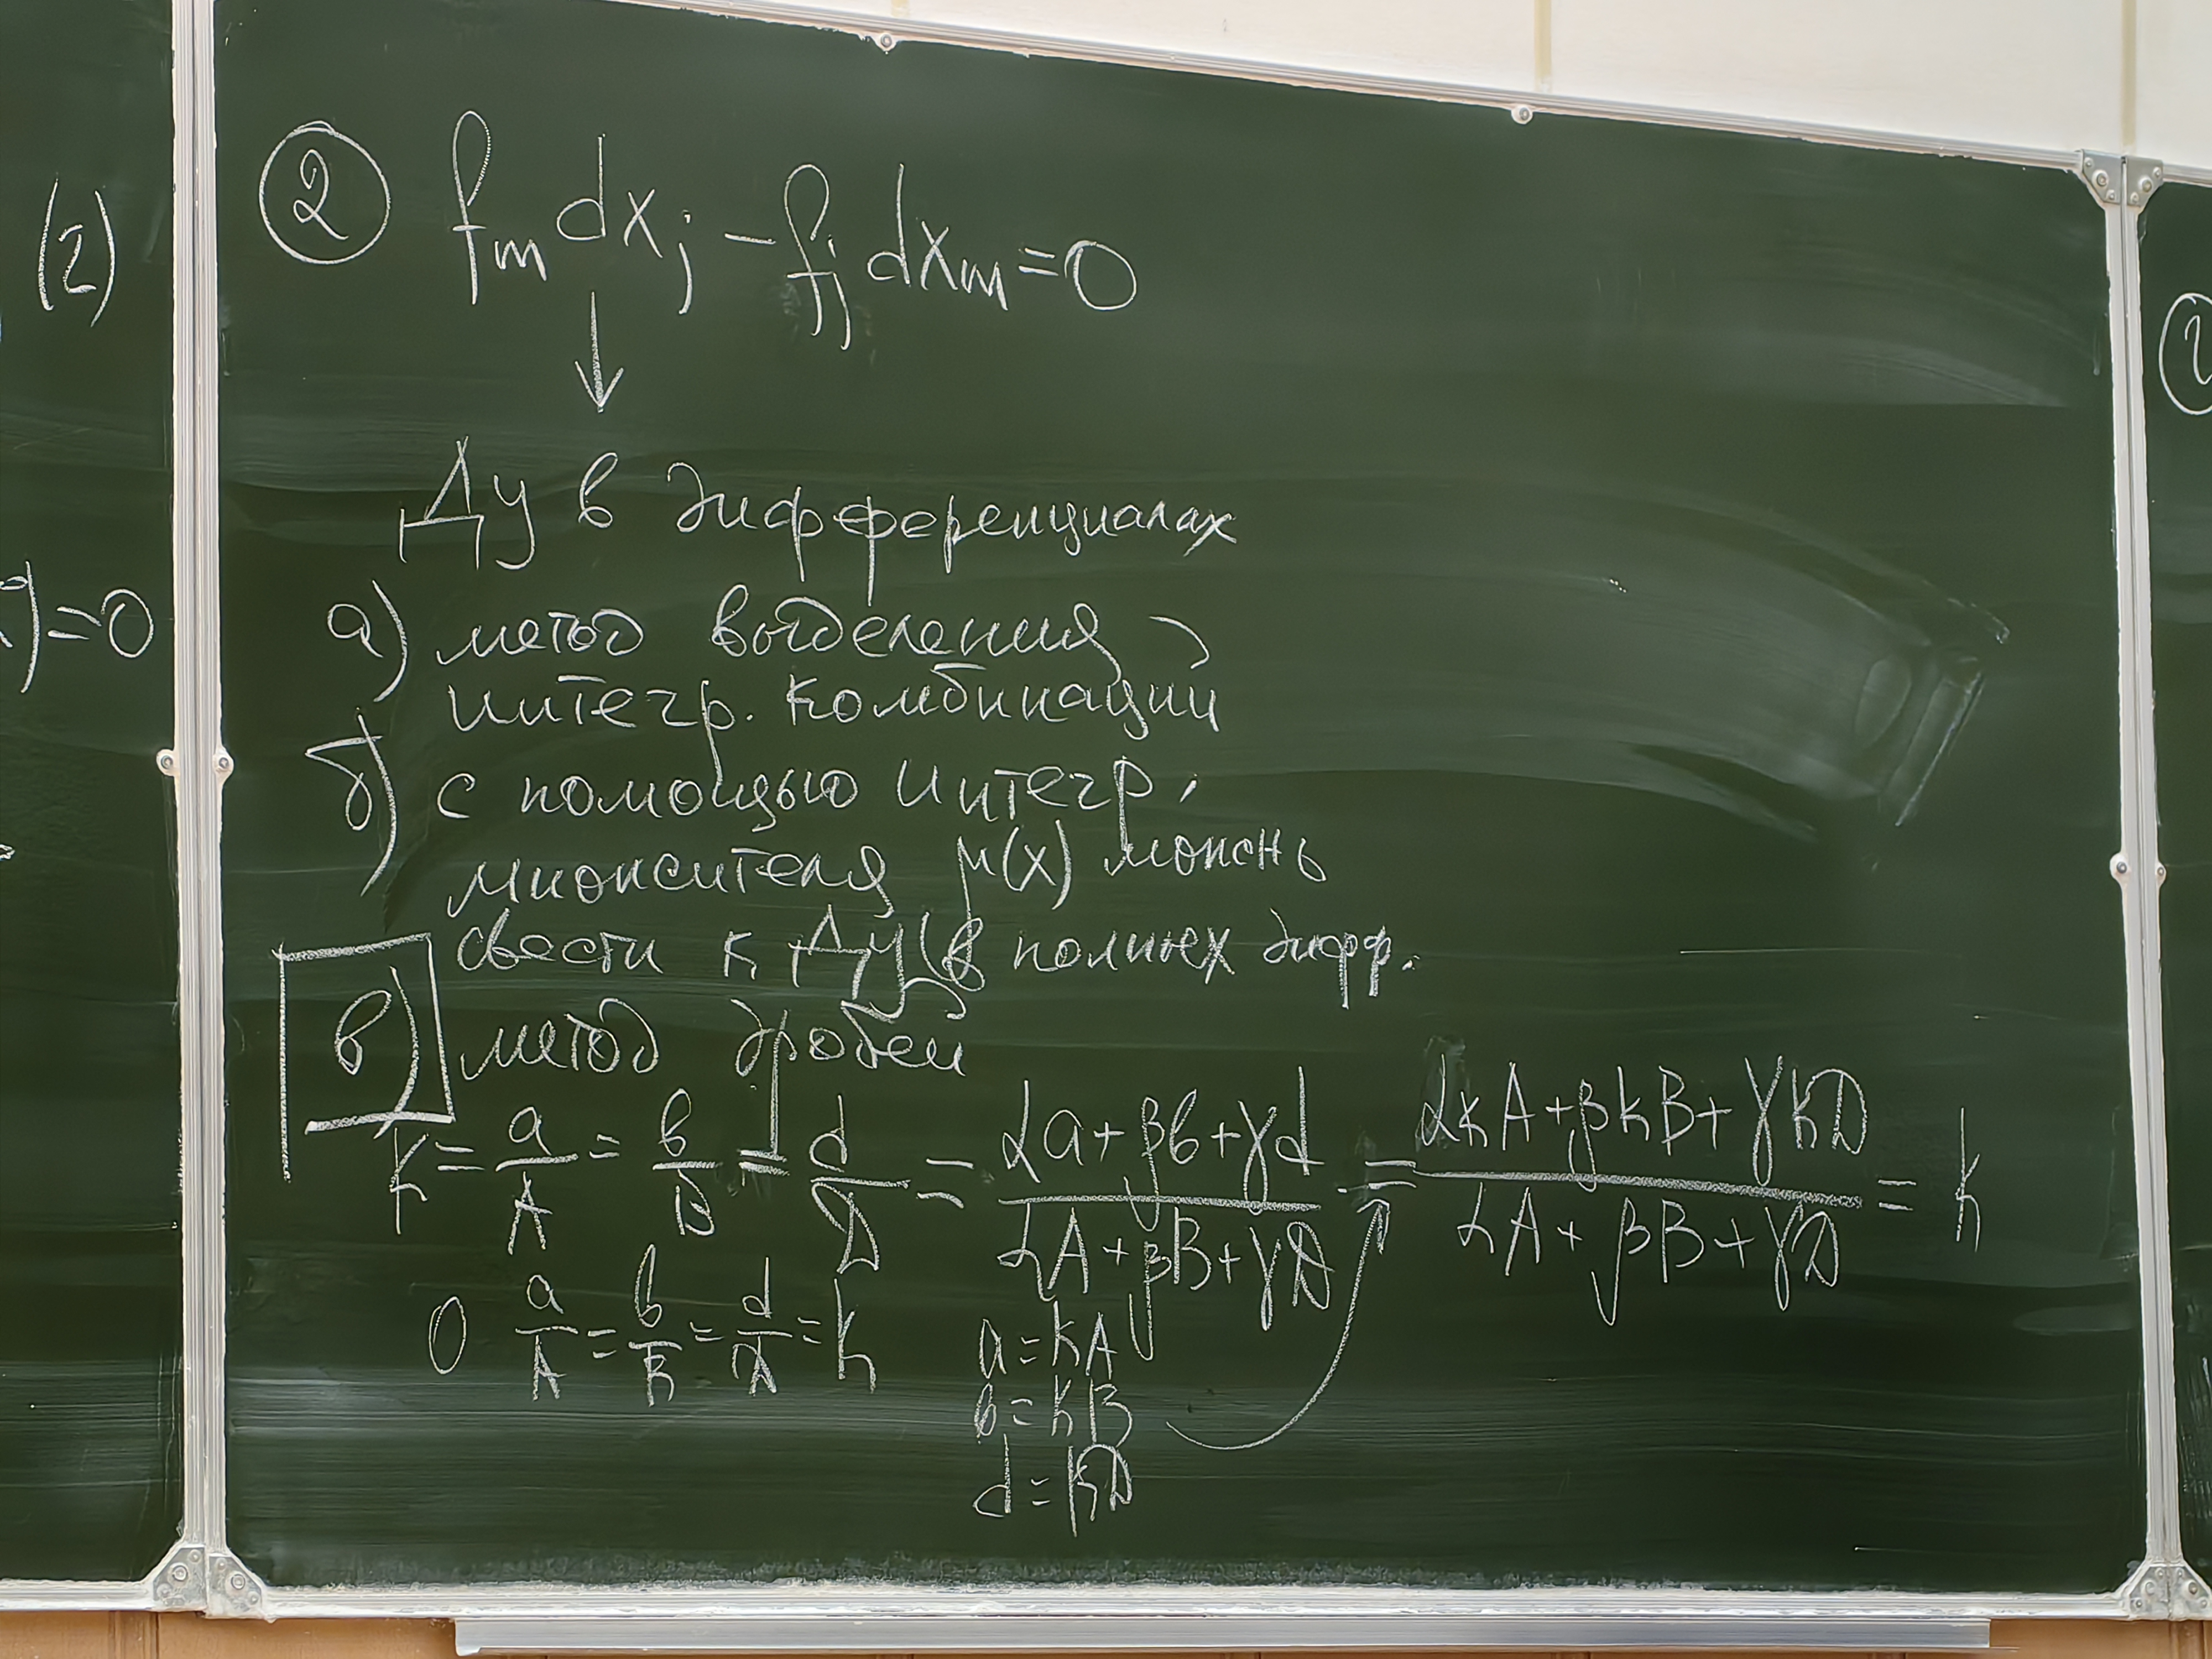 (2)
)=0
② fm dxj – fj dxm = 0
↓
Ду в дифференциалах
а) метод выделения
интегр. комбинаций
б) с помощью интегр.
множителя μ(x) можнь
свести к Ду в полных дифф.
в) метод дробей
k = a/A = в/B = d/D = (αa+βв+γd)/(αA+βB+γD) = (αkA+βkB+γkD)/(αA+βB+γD) = k
0 a/A = в/B = d/D = k
a = kA
в = kB
d = kD